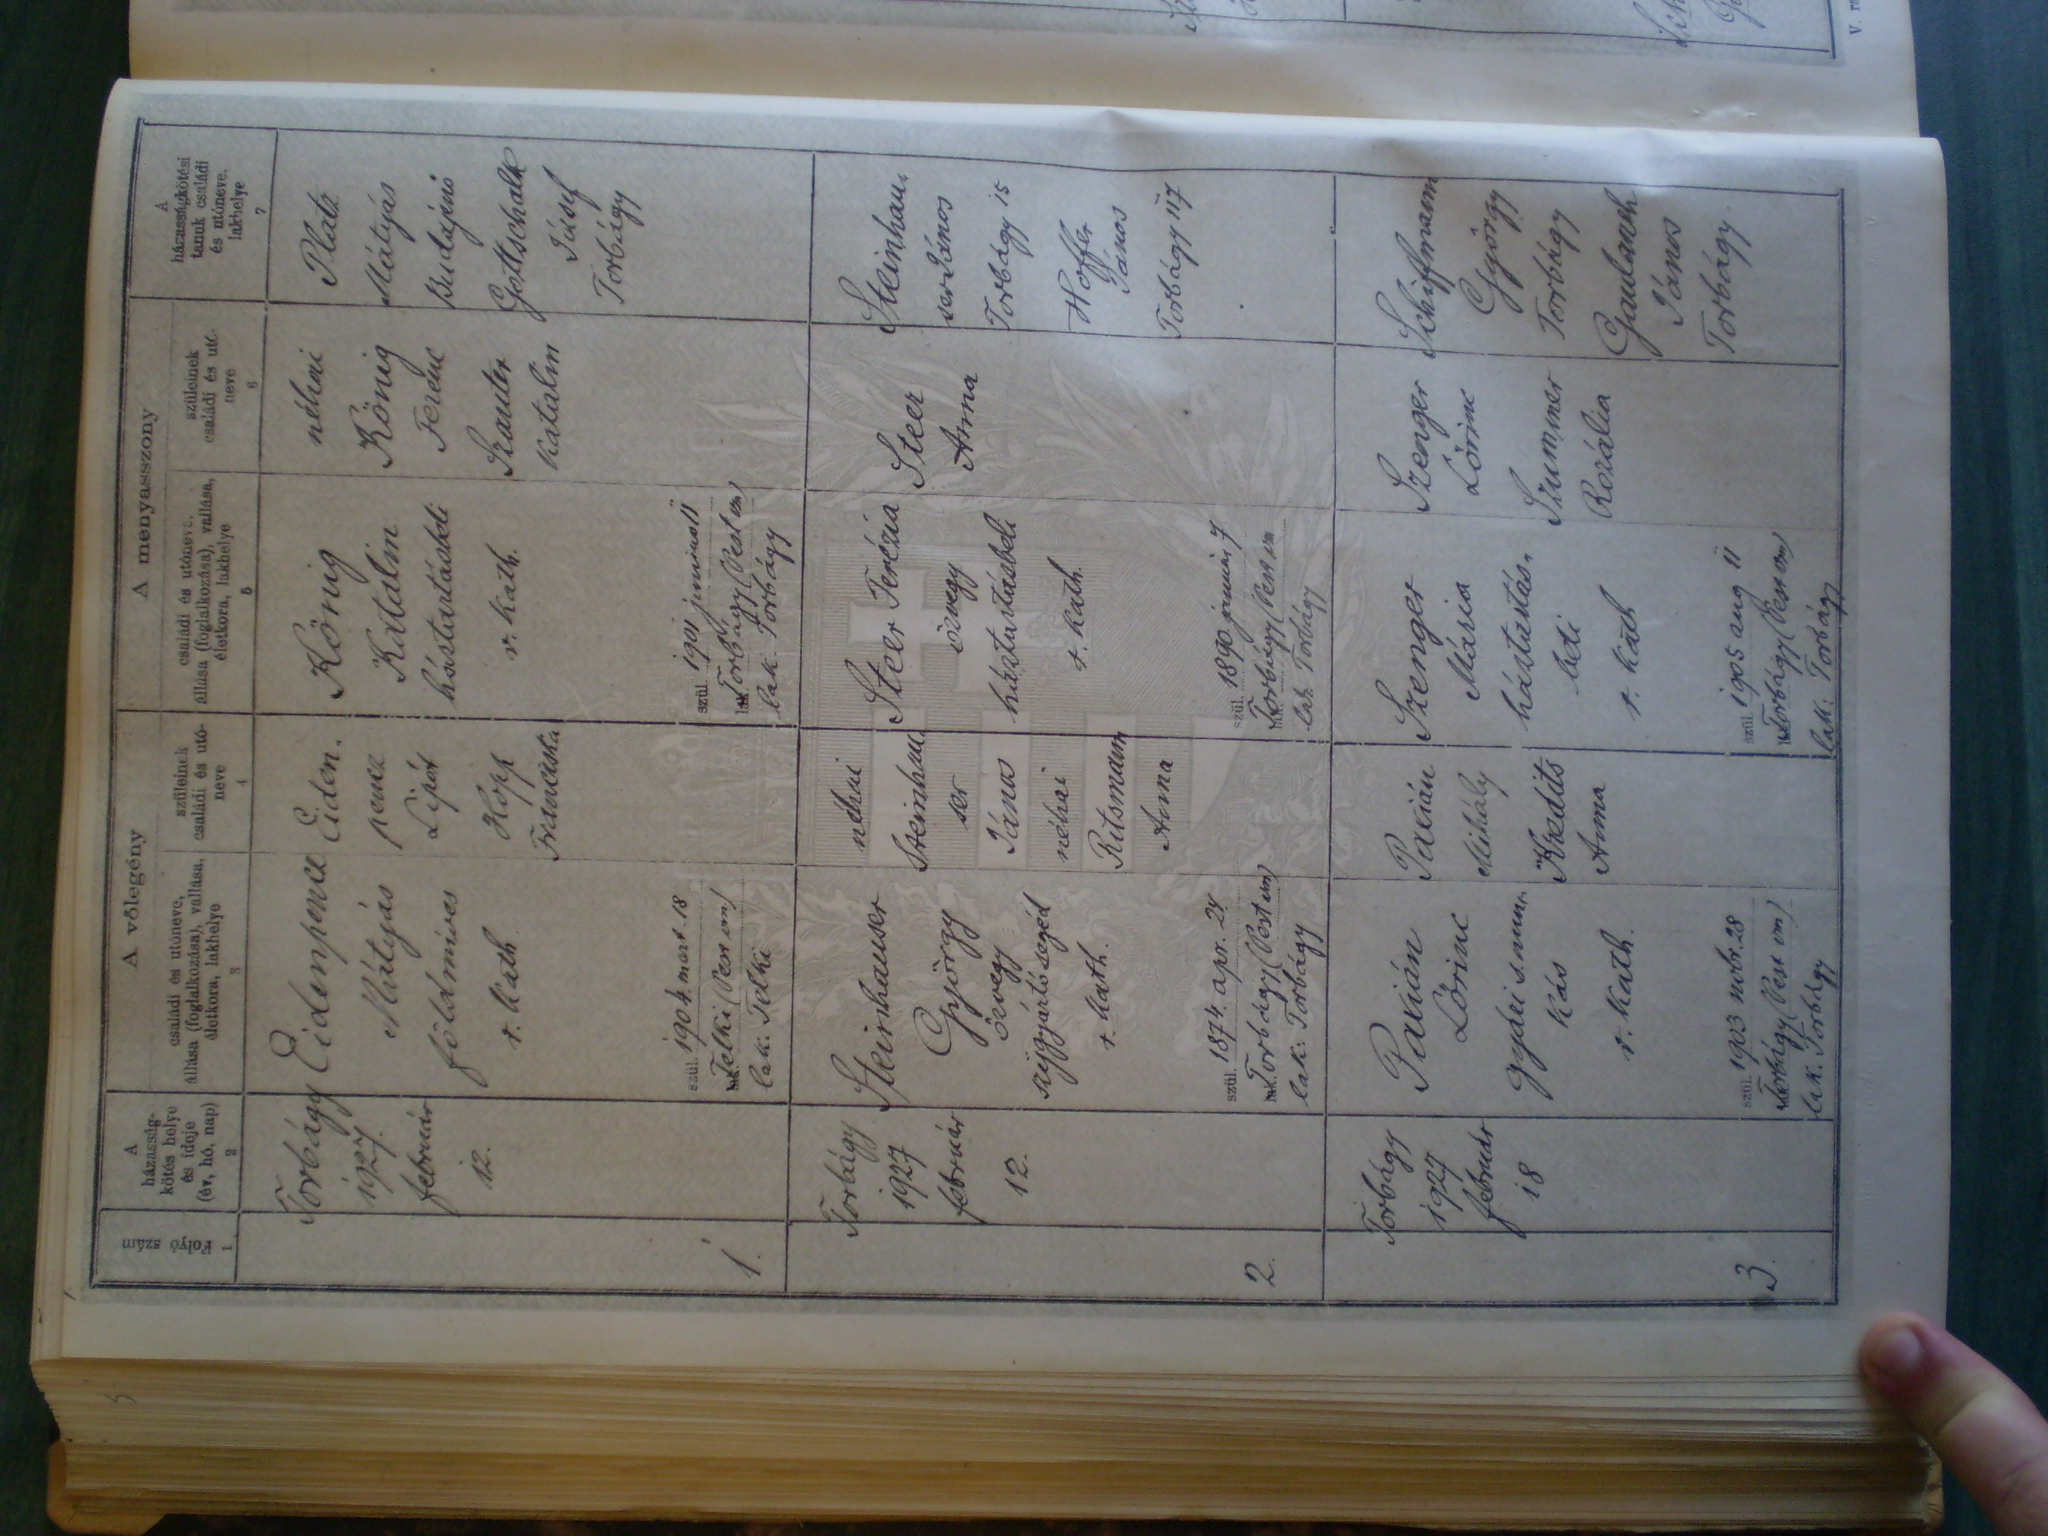 1
Folyó
szám
A
házasság-
kötés helye
és ideje
(év, hó, nap)
2
A vőlegény
családi és utóneve,
állása (foglalkozása), vallása,
életkora, lakhelye
3
szüleinek
családi és utó-
neve
4
A menyasszony
családi és utóneve,
állása (foglalkozása), vallása,
életkora, lakhelye
5
szüleinek
családi és utó-
neve
6
A
házasságkötési
tanuk családi
és utóneve,
lakhelye
7
1.
Torbágy
1927.
február
12.
Eidenpencz
Mátyás
földmíves
r. kath.
szül. 1904. márt. 18
Telki (Pest vm)
lak: Telki
Eiden-
pencz
Lipót
Hopp
Franciska
König
Katalin
háztartásbeli
r. kath.
szül. 1901 junius 11
Torbágy (Pest vm)
lak. Torbágy
néhai
König
Ferenc
Szauter
Katalin
Platz
Mátyás
Budajenő
Gottschalk
József
Torbágy
2.
Torbágy
1927
február
12.
Steinhauser
György
özvegy
szijgyártósegéd
r. kath.
szül. 1874. apr. 24
Torbágy (Pest vm)
lak: Torbágy
néhai
Steinhau-
ser
János
néhai
Ritsmann
Anna
Steer Terézia
özvegy
háztartásbeli
r. kath.
szül. 1890. január 7
Torbágy (Pest vm
lak Torbágy
Steer
Anna
Steinhau-
ser János
Torbágy 15
Hoffer
János
Torbágy 117
3.
Torbágy
1927
február
18
Pacián
Lőrinc
gyári s. mun-
kás
r. kath.
szül. 1903 nobr. 28
Torbágy (Pest vm)
lak. Torbágy
Pacián
Mihály
Anna
Szenger
Mária
háztartás-
beli
r. kath
szül. 1905 aug 11
Torbágy (Pest vm)
lak: Torbágy
Szenger
Lőrinc
Szummer
Rozália
Schiffmann
György
Torbágy
János
Torbágy